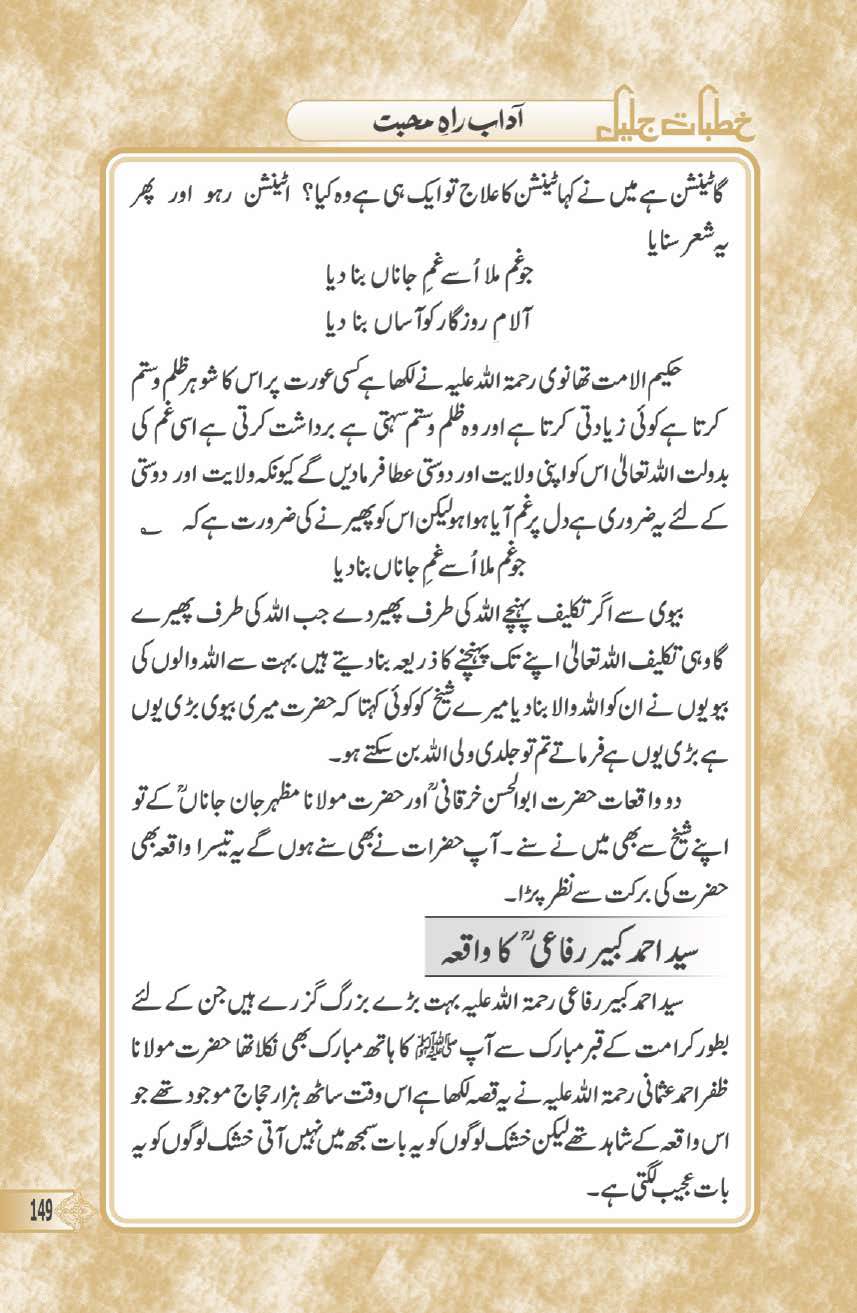 خطبات جلیل
آداب راہِ محبت
گا ٹینشن ہے میں نے کہا ٹینشن کا علاج تو ایک ہی ہے وہ کیا؟ اٹینشن رہو اور پھر
یہ شعر سنایا
جو غم ملا اُسے غمِ جاناں بنا دیا
آلامِ روزگار کو آساں بنا دیا
حکیم الامت تھانوی رحمۃ اللہ علیہ نے لکھا ہے کسی عورت پر اس کا شوہر ظلم وستم
کرتا ہے کوئی زیادتی کرتا ہے اور وہ ظلم وستم سہتی ہے برداشت کرتی ہے اسی غم کی
بدولت اللہ تعالیٰ اس کو اپنی ولایت اور دوستی عطا فرمادیں گے کیونکہ ولایت اور دوستی
کے لئے یہ ضروری ہے دل پر غم آیا ہوا ہو لیکن اس کو پھیرنے کی ضرورت ہے کہ ؎
جو غم ملا اُسے غمِ جاناں بنا دیا
بیوی سے اگر تکلیف پہنچے اللہ کی طرف پھیر دے جب اللہ کی طرف پھیرے
گا وہی تکلیف اللہ تعالیٰ اپنے تک پہنچنے کا ذریعہ بنا دیتے ہیں بہت سے اللہ والوں کی
بیویوں نے ان کو اللہ والا بنا دیا میرے شیخ کو کوئی کہتا کہ حضرت میری بیوی بڑی یوں
ہے بڑی یوں ہے فرماتے تم تو جلدی ولی اللہ بن سکتے ہو۔
دو واقعات حضرت ابوالحسن خرقانیؒ اور حضرت مولانا مظہر جان جاناںؒ کے تو
اپنے شیخ سے بھی میں نے سنے ۔ آپ حضرات نے بھی سنے ہوں گے یہ تیسرا واقعہ بھی
حضرت کی برکت سے نظر پڑا۔
سید احمد کبیر رفاعیؒ کا واقعہ
سید احمد کبیر رفاعی رحمۃ اللہ علیہ بہت بڑے بزرگ گزرے ہیں جن کے لئے
بطور کرامت کے قبر مبارک سے آپ ﷺ کا ہاتھ مبارک بھی نکلا تھا حضرت مولانا
ظفر احمد عثمانی رحمۃ اللہ علیہ نے یہ قصہ لکھا ہے اس وقت ساٹھ ہزار حجاج موجود تھے جو
اس واقعہ کے شاہد تھے لیکن خشک لوگوں کو یہ بات سمجھ میں نہیں آتی خشک لوگوں کو یہ
بات عجیب لگتی ہے۔
149